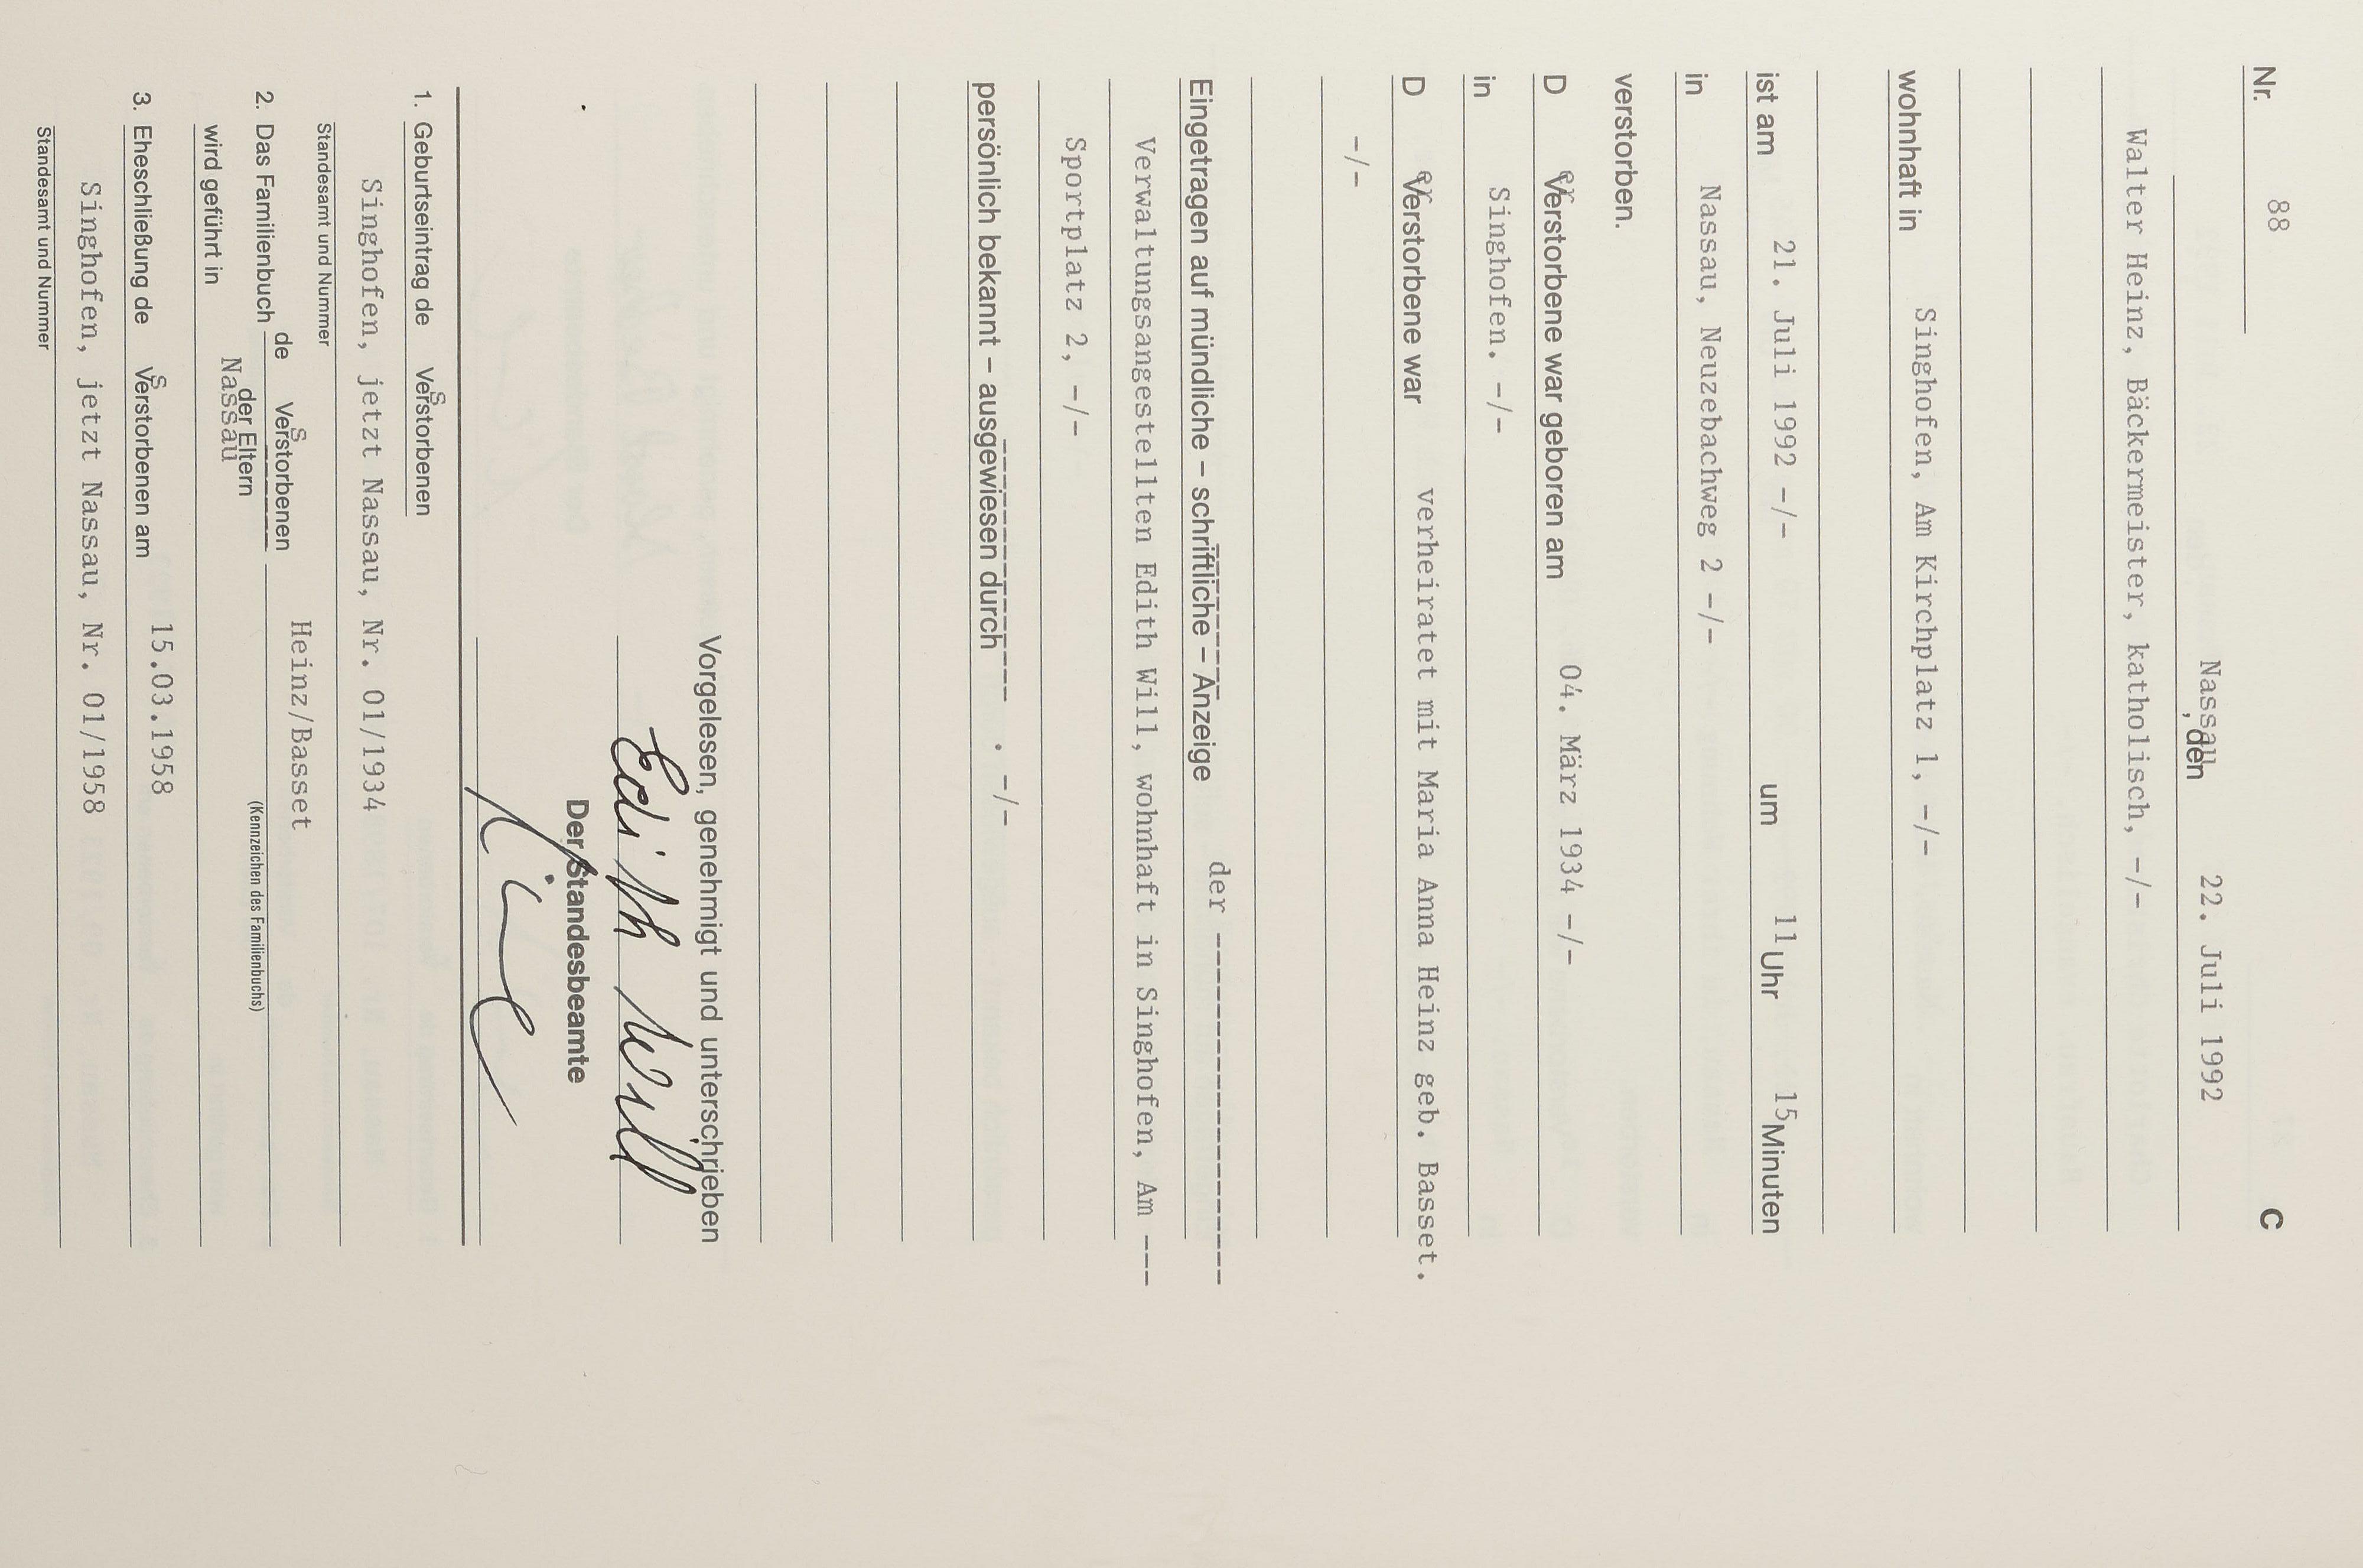 Nr. 88 C
Nassau, den 22. Juli 1992
Walter Heinz, Bäckermeister, katholisch, -/-
wohnhaft in Singhofen, Am Kirchplatz 1, -/-
ist am 21. Juli 1992 -/- um 11 Uhr 15 Minuten
in Nassau, Neuzebachweg 2 -/-
verstorben.
Der Verstorbene war geboren am 04. März 1934 -/-
in Singhofen. -/-
Der Verstorbene war verheiratet mit Maria Anna Heinz geb. Basset.
-/-
Eingetragen auf mündliche – schriftliche – Anzeige der --------------------
Verwaltungsangestellten Edith Will, wohnhaft in Singhofen, Am ---
Sportplatz 2, -/-
persönlich bekannt – ausgewiesen durch . -/-
Vorgelesen, genehmigt und unterschrieben
Edith Will
Der Standesbeamte
1. Geburtseintrag des Verstorbenen
Singhofen, jetzt Nassau, Nr. 01/1934
Standesamt und Nummer
2. Das Familienbuch des Verstorbenen Heinz/Basset
der Eltern (Kennzeichen des Familienbuchs)
wird geführt in Nassau
3. Eheschließung des Verstorbenen am 15.03.1958
Singhofen, jetzt Nassau, Nr. 01/1958
Standesamt und Nummer